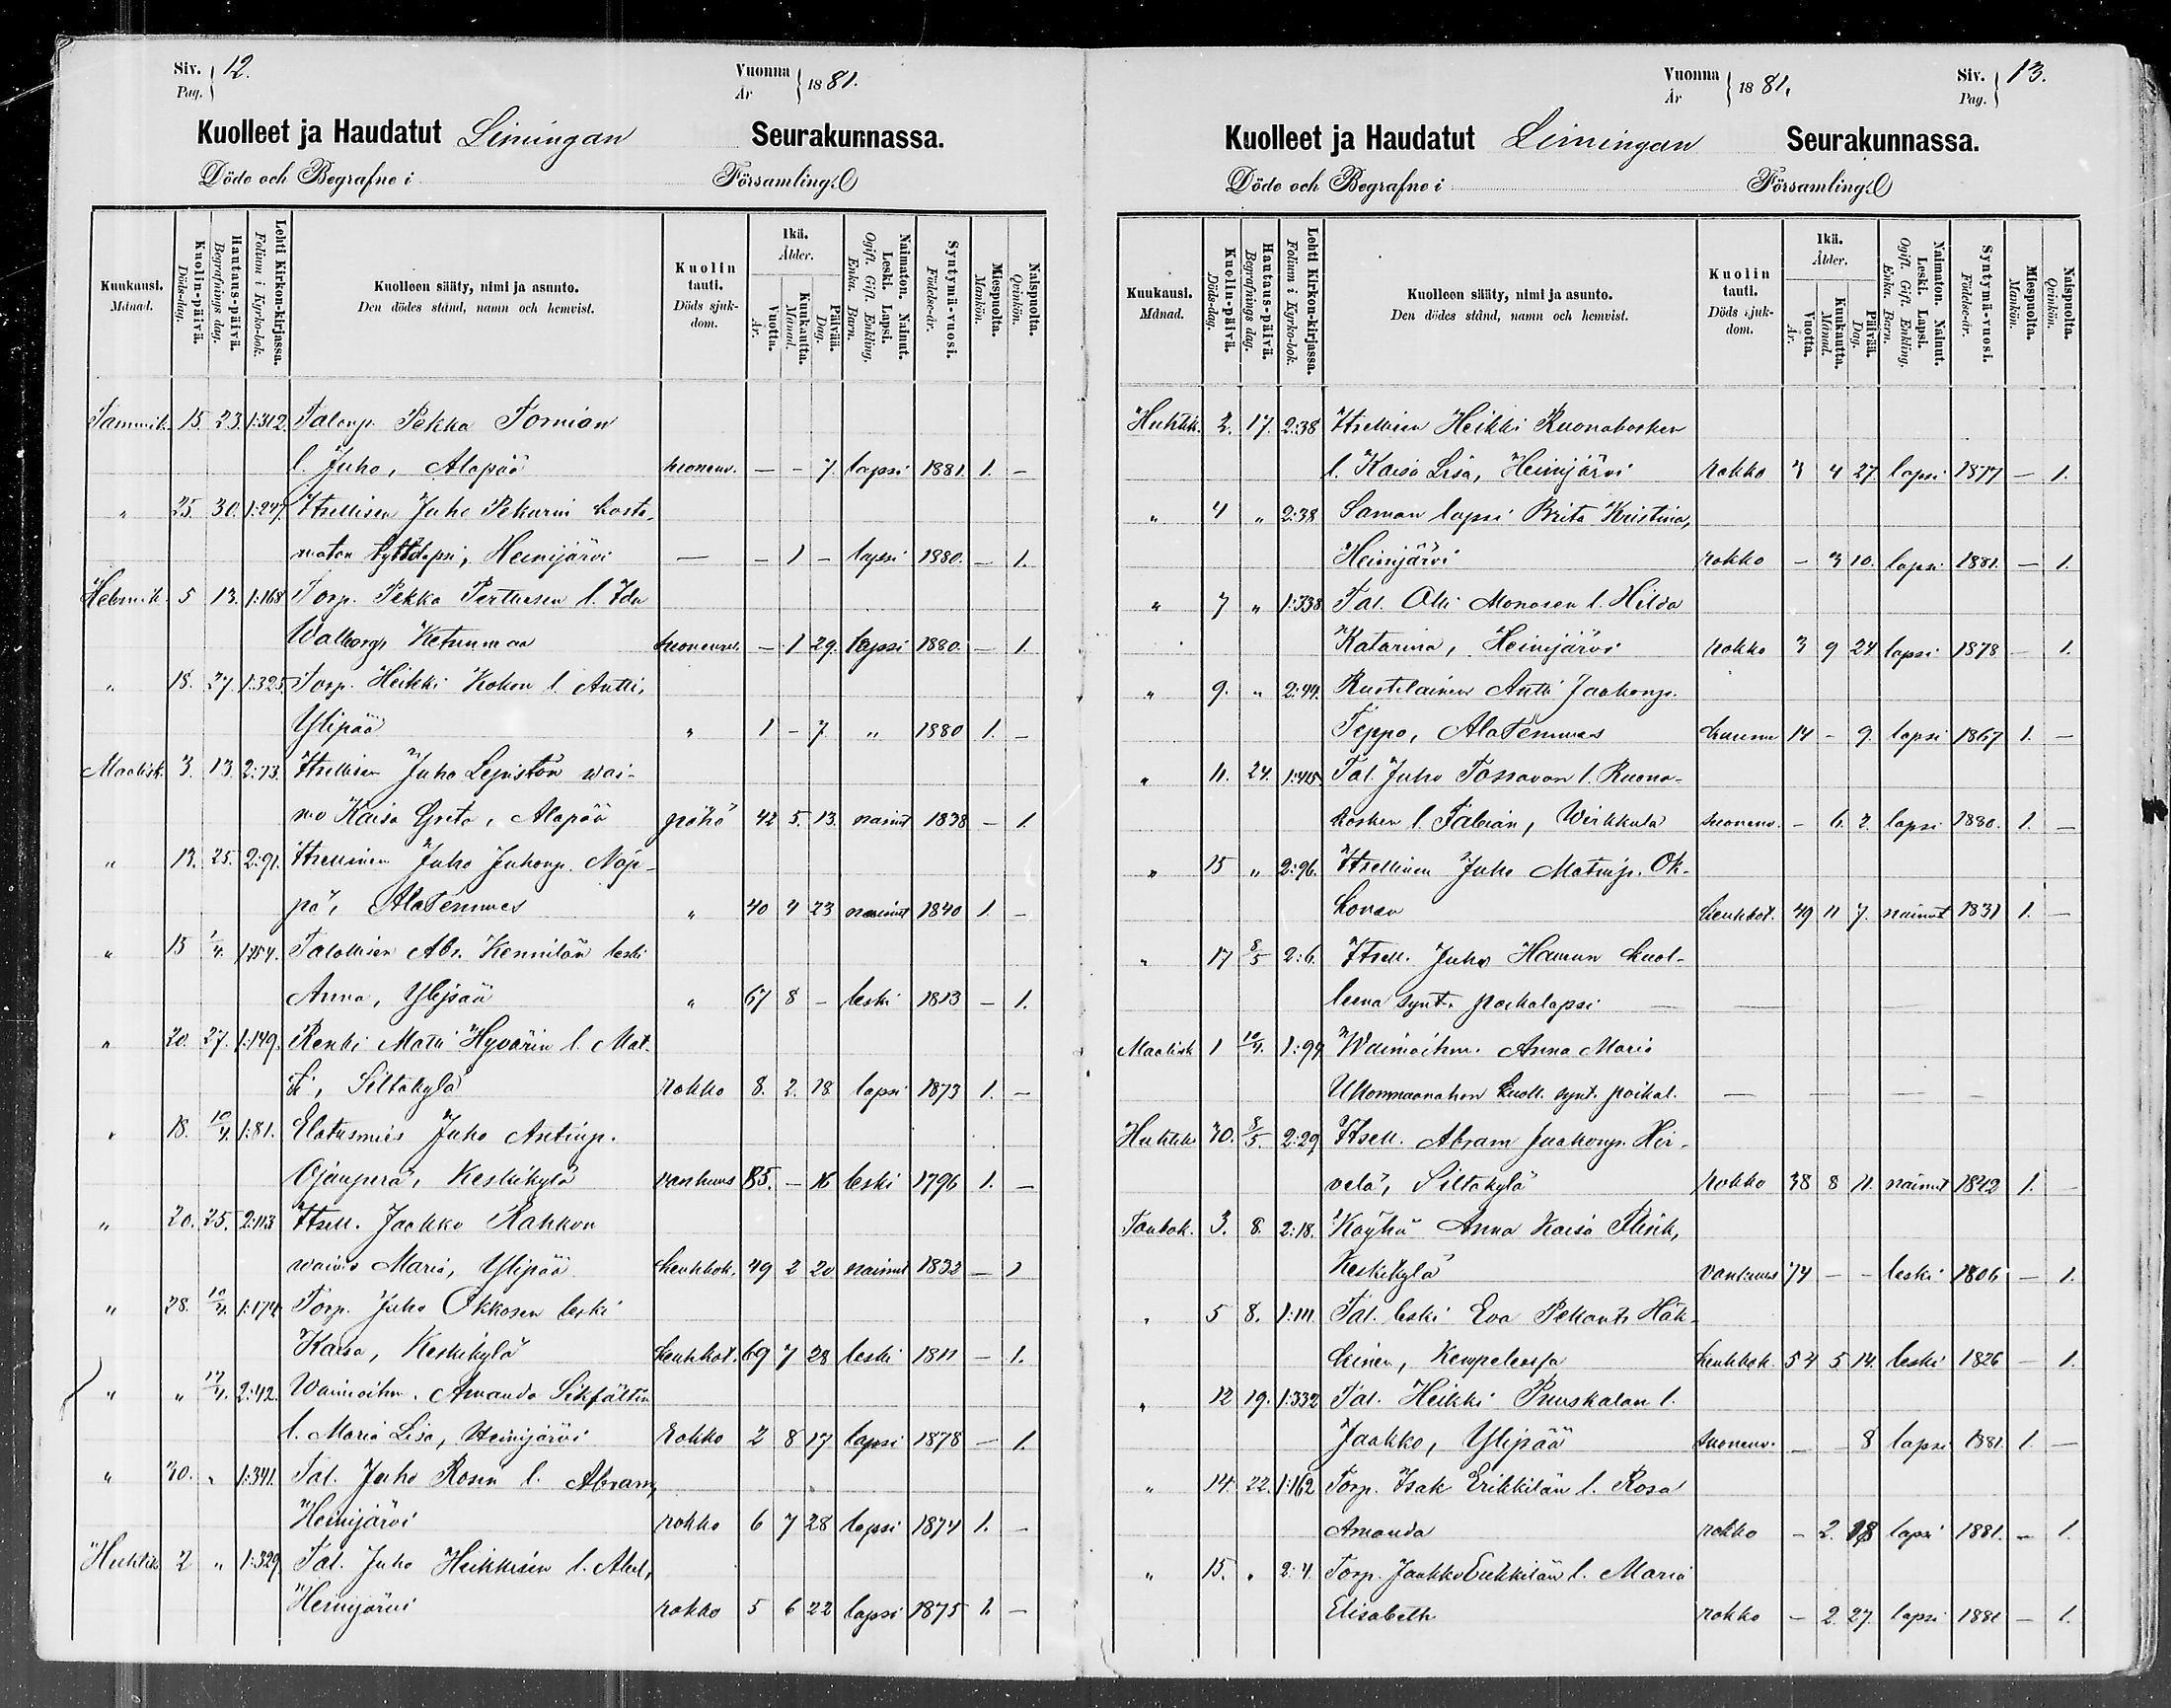 Siv. Pag. } 12.
Vuonna År } 1881.
Kuolleet ja Haudatut Limingan Seurakunnassa.
Döde och Begrafne i Församling.
Kuukausi. Månad.
Kuolin-päivä. Döds-dag.
Hautaus-päivä. Begrafnings dag.
Lehti Kirkon-kirjassa. Folium i Kyrko-bok.
Kuolleen sääty, nimi ja asunto. Den dödes stånd, namn och hemvist.
Kuolin tauti. Döds sjuk-dom.
Ikä. Ålder.
Vuotta. År.
Kuukautta. Månad.
Päivää. Dag.
Naimaton. Nainut. Leski. Lapsi. Ogift. Gift. Enkling. Enka. Barn.
Syntymä-vuosi. Födelse-år.
Miespuolta. Mankön.
Naispuolta. Qvinkön.
Tammik. 15 23. 1:312 Talonp. Pekka Tornion
l. Juho, Alapää kuonenv. — - 7. lapsi 1881. 1. -
" 25. 30. 1:247. Itsellisen Juho Pekurin kaste-
maton tyttölapsi, Heinijärvi — - 1 - lapsi 1880. — 1.
Helmik. 5 13. 1:168 Torp. Pekka Perttusen l. Ida
Walborg, Ketunmaa suonenv. — 1 29. lapsi 1880. — 1.
" 18. 27. 1:325 Torp. Heikki Kokon l. Antti,
Ylipää " 1 - 7. " 1880 1. -
Maalisk. 3. 13. 2:73. Itsellisen Juho Lepistön vai-
mo Kaisa Greta, Alapää pöhö 42 5. 13. nainut 1838 - 1.
" 13. 25. 2:91. Itsellinen Juho Juhonp. Näp-
pä, AlaTemmes " 40 4 23 nainut 1840 1. -
" 15 1/4. 1:154. Talollisen Abr. Kennilän leski
Anna, Ylipää " 67 8 - leski 1813 - 1.
" 20. 27. 1:149. Renki Matti Hyvärin l. Mat-
ti, Siltakylä rokko 8. 2. 18 lapsi 1873 1. -
" 18. 10/4. 1:81. Elatusmies Juho Antinp.
Ojanperä, Keskikylä vanhuus 85. - 16 leski 1796 1. -
" 20. 25. 2:113 Itsell. Jaakko Rahkon
waimo Maria, Ylipää keuhkok. 49 2 20 nainut 1832 — 1
" 28. 10/4. 1:174 Torp. Juho Okkosen leski
Kaisa, Keskikylä keuhkot. 69 7 28 leski 1811 — 1.
" " 17/4. 2:42. Waimoihm. Amanda Sikfältin
l. Maria Lisa, Heinijärvi Rokko 2 8 17 lapsi 1878 — 1.
" 30. " 1:341. Tal. Juho Rosin l. Abram,
Heinijärvi rokko 6 7 28 lapsi 1874 1. -
Huhtik 2 " 1:329 Tal. Juho Heikkisen l. Abel,
Heinijärvi rokko 5 6 22 lapsi 1875 1. —
Vuonna År } 1881.
Siv. Pag. } 13.
Kuolleet ja Haudatut Limingan Seurakunnassa.
Döde och Begrafne i Församling.
Kuukausi. Månad.
Kuolin-päivä. Döds-dag.
Hautaus-päivä. Begrafnings dag.
Lehti Kirkon-kirjassa. Folium i Kyrko-bok.
Kuolleen sääty, nimi ja asunto. Den dödes stånd, namn och hemvist.
Kuolin tauti. Döds sjuk-dom.
Ikä. Ålder.
Vuotta. År.
Kuukautta. Månad.
Päivää. Dag.
Naimaton. Nainut. Leski. Lapsi. Ogift. Gift. Enkling. Enka. Barn.
Syntymä-vuosi. Födelse-år.
Miespuolta. Mankön.
Naispuolta. Qvinkön.
Huhtik. 2. 17. 2:38 Itsellisen Heikki Ruonakosken
l. Kaisa Lisa, Heinijärvi rokko 3 4 27. lapsi 1877 — 1.
" 4 " 2:38 Saman lapsi Brita Kristina,
Heinijärvi rokko - 3 10. lapsi 1881. — 1.
" 7 " 1:338. Tal. Olli Monosen l. Hilda
Katarina, Heinijärvi rokko 3 9 24 lapsi 1878 — 1.
" 9. " 2:44. Ruotilainen Antti Jaakonp.
Teppo, AlaTemmes kuume 14 - 9. lapsi 1867 1. —
" 11. 24. 1:415. Tal. Juho Tossavan l. Ruona-
kosken l. Fabian, Wirkkula suonenv. - 6. 2. lapsi 1880. 1. —
" 15 " 2:96. Itsellinen Juho Matinp. Ok-
konen keuhkot. 49 11 7. nainut 1831 1. —
" 17 8/5 2:6. Itsell. Juho Hannun kuol-
leena synt. poikalapsi — — — — —
Maalisk 1 10/4. 1:99 Waimoihm. Anna Maria
Ulkonmaanahon kuoll. synt. poikal. — — — —
Huhtik 30. 8/5. 2:29 Itsell. Abram Jaakonp. Hir-
velä, Siltakylä rokko 38 8 11. nainut 1842 1. —
Toukok. 3. 8. 2:18. Köyhä Anna Kaisa Flink,
Keskikylä vanhuus 74 - - leski 1806 — 1.
" 5 8. 1:111. Tal. leski Eva Pekant. Häk-
kinen, Kempeleessä keuhkok. 54 5 14. leski 1826 — 1.
" 12 19. 1:332 Tal. Heikki Puuskalan l.
Jaakko, Ylipää suonenv. — - 8 lapsi 1881. 1. —
" 14. 22. 1:162 Torp. Isak Erikkilän l. Rosa
Amanda rokko - 2. 18 lapsi 1881. — 1.
" 15. " 2:4. Torp. Jaakko Erikkilän l. Maria
Elisabeth rokko - 2. 27. lapsi 1881 — 1.